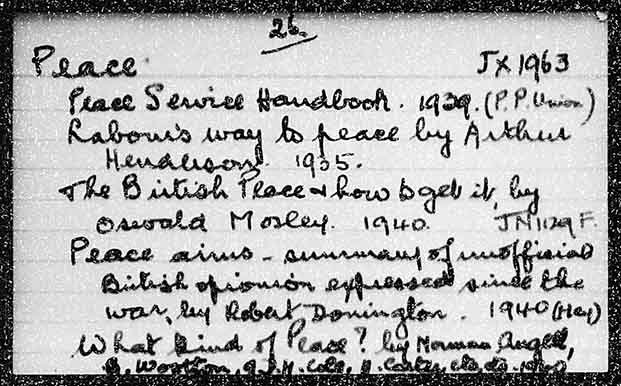 26.
Peace. JX1963
Peace Service Handbook. 1939. (P.P. Union)
Labour's way to peace by Arthur
Henderson. 1935.
The British Peace & how to get it, by
Oswald Mosley. 1940. JN1129 F.
Peace aims - summary of unofficial
British opinion expressed since the
war, by Robert Donington. 1940 (May)
What kind of Peace? by Norman Angell,
B. Wootton, G.D.H. Cole,